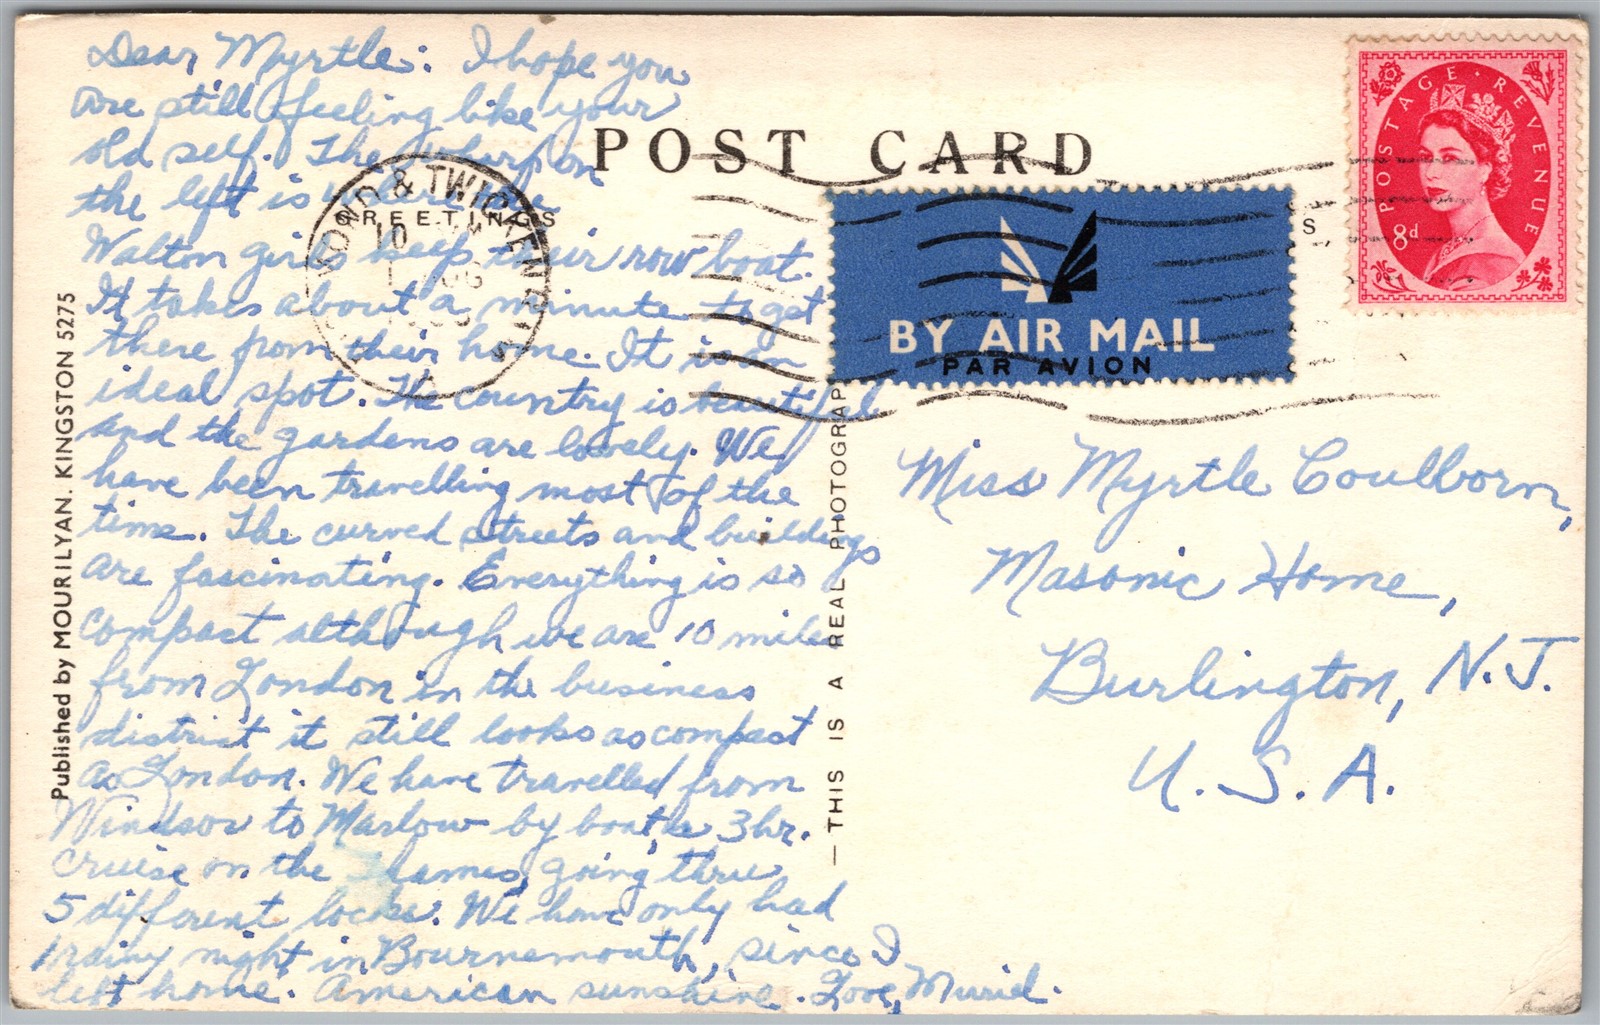 Dear Myrtle: I hope you
are still feeling like your
old self. The wharf on
the left is where the
Walton girls keep their row boat.
It takes about a minute to get
there from their home. It is an
ideal spot. The country is beautiful
and the gardens are lovely. We
have been travelling most of the
time. The curved streets and buildings
are fascinating. Everything is so
compact although we are 10 miles
from London in the business
district it still looks as compact
as London. We have travelled from
Windsor to Marlow by boat, a 3 hr.
cruise on the Thames, going thru
5 different locks. We have only had
1 rainy night in Bournemouth, since I
left home. American sunshine. Love, Muriel.
POST CARD
GREETINGS
S
10
AUG
& TWICKENHAM
BY AIR MAIL
PAR AVION
POSTAGE · REVENUE
8d
Miss Myrtle Coulborn,
Masonic Home,
Burlington, N.J.
U.S.A.
Published by MOURILYAN. KINGSTON 5275
— THIS IS A REAL PHOTOGRAP